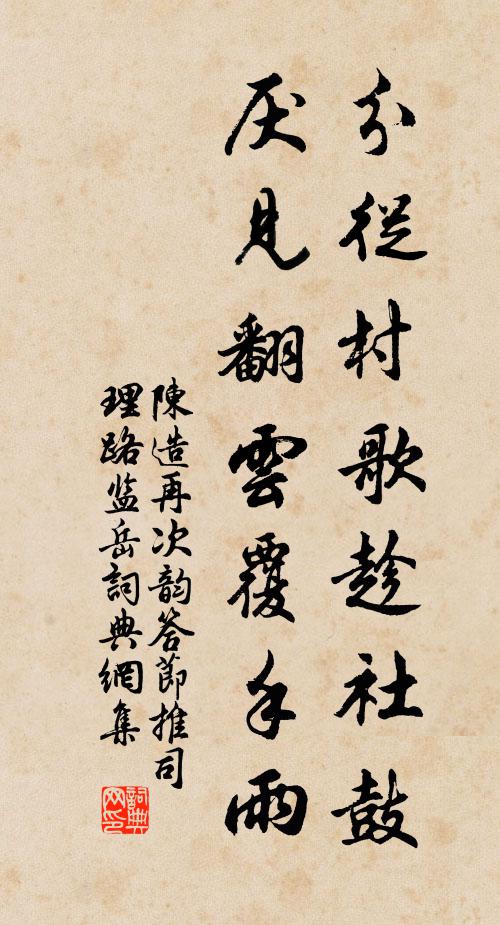 分從村歌趁社鼓
厌見翻雲覆手雨
陳造再次韵答節推司
理路监岳詞典網集
詞典
网印